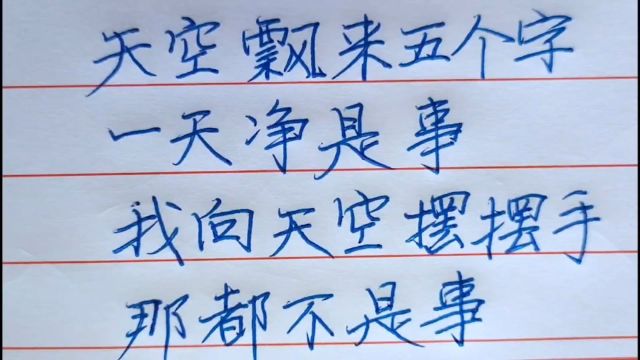 天空飘来五个字
一天净是事
我向天空摆摆手
那都不是事